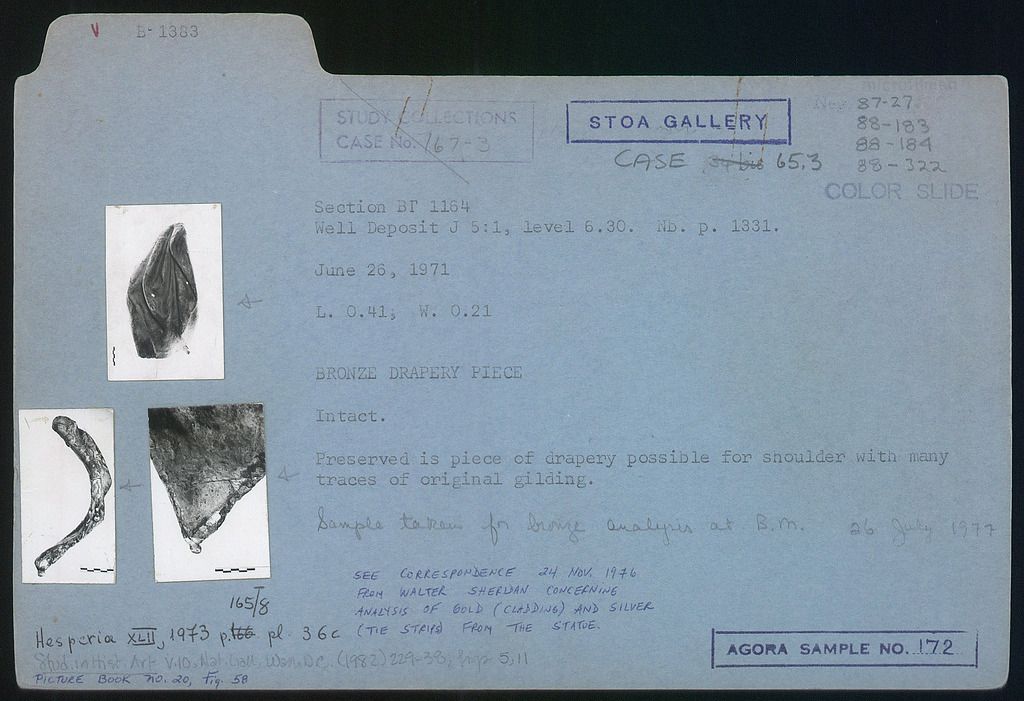 V B-1383
STUDY COLLECTIONS
CASE No. 167-3
STOA GALLERY
CASE 65,3
Neg. 87-27
88-183
88-184
88-322
COLOR SLIDE
Section BΓ 1164
Well Deposit J 5:1, level 6.30. Nb. p. 1331.
June 26, 1971
L. 0.41; W. 0.21
BRONZE DRAPERY PIECE
Intact.
Preserved is piece of drapery possible for shoulder with many
traces of original gilding.
Sample taken for bronze analysis at B.M. 26 July 1977
SEE CORRESPONDENCE 24 NOV. 1976
FROM WALTER SHERIDAN CONCERNING
ANALYSIS OF GOLD (CLADDING) AND SILVER
(TIE STRIPS) FROM THE STATUE.
165/8
Hesperia XLII, 1973 p. 166 pl. 36c
Stud. in Hist. Art V.10, Nat. Gall. Wash. D.C. (1982) 229-38, figs 5, 11
PICTURE BOOK NO. 20, Fig. 58
AGORA SAMPLE NO. 172